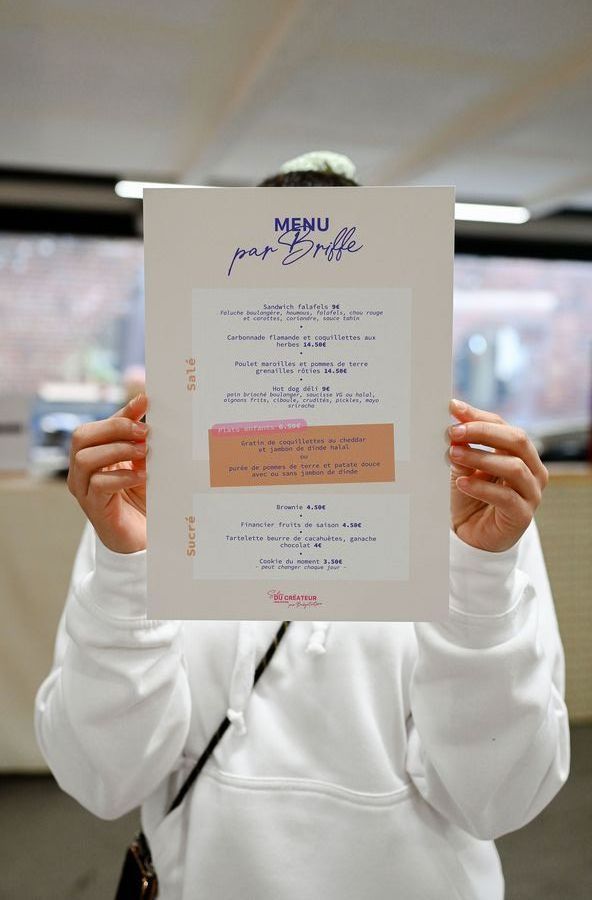 MENU
par Briffe
Salé
Sandwich falafels 9€
Faluche boulangère, houmous, falafels, chou rouge
et carottes, coriandre, sauce tahin
Carbonnade flamande et coquillettes aux
herbes 14.50€
Poulet maroilles et pommes de terre
grenailles rôties 14.50€
Hot dog déli 9€
pain brioché boulanger, saucisse VG ou halal,
oignons frits, ciboule, crudités, pickles, mayo
sriracha
Plats enfants 6.50€
Gratin de coquillettes au cheddar
et jambon de dinde halal
ou
purée de pommes de terre et patate douce
avec ou sans jambon de dinde
Sucré
Brownie 4.50€
Financier fruits de saison 4.50€
Tartelette beurre de cacahuètes, ganache
chocolat 4€
Cookie du moment 3.50€
- peut changer chaque jour -
DU CRÉATEUR